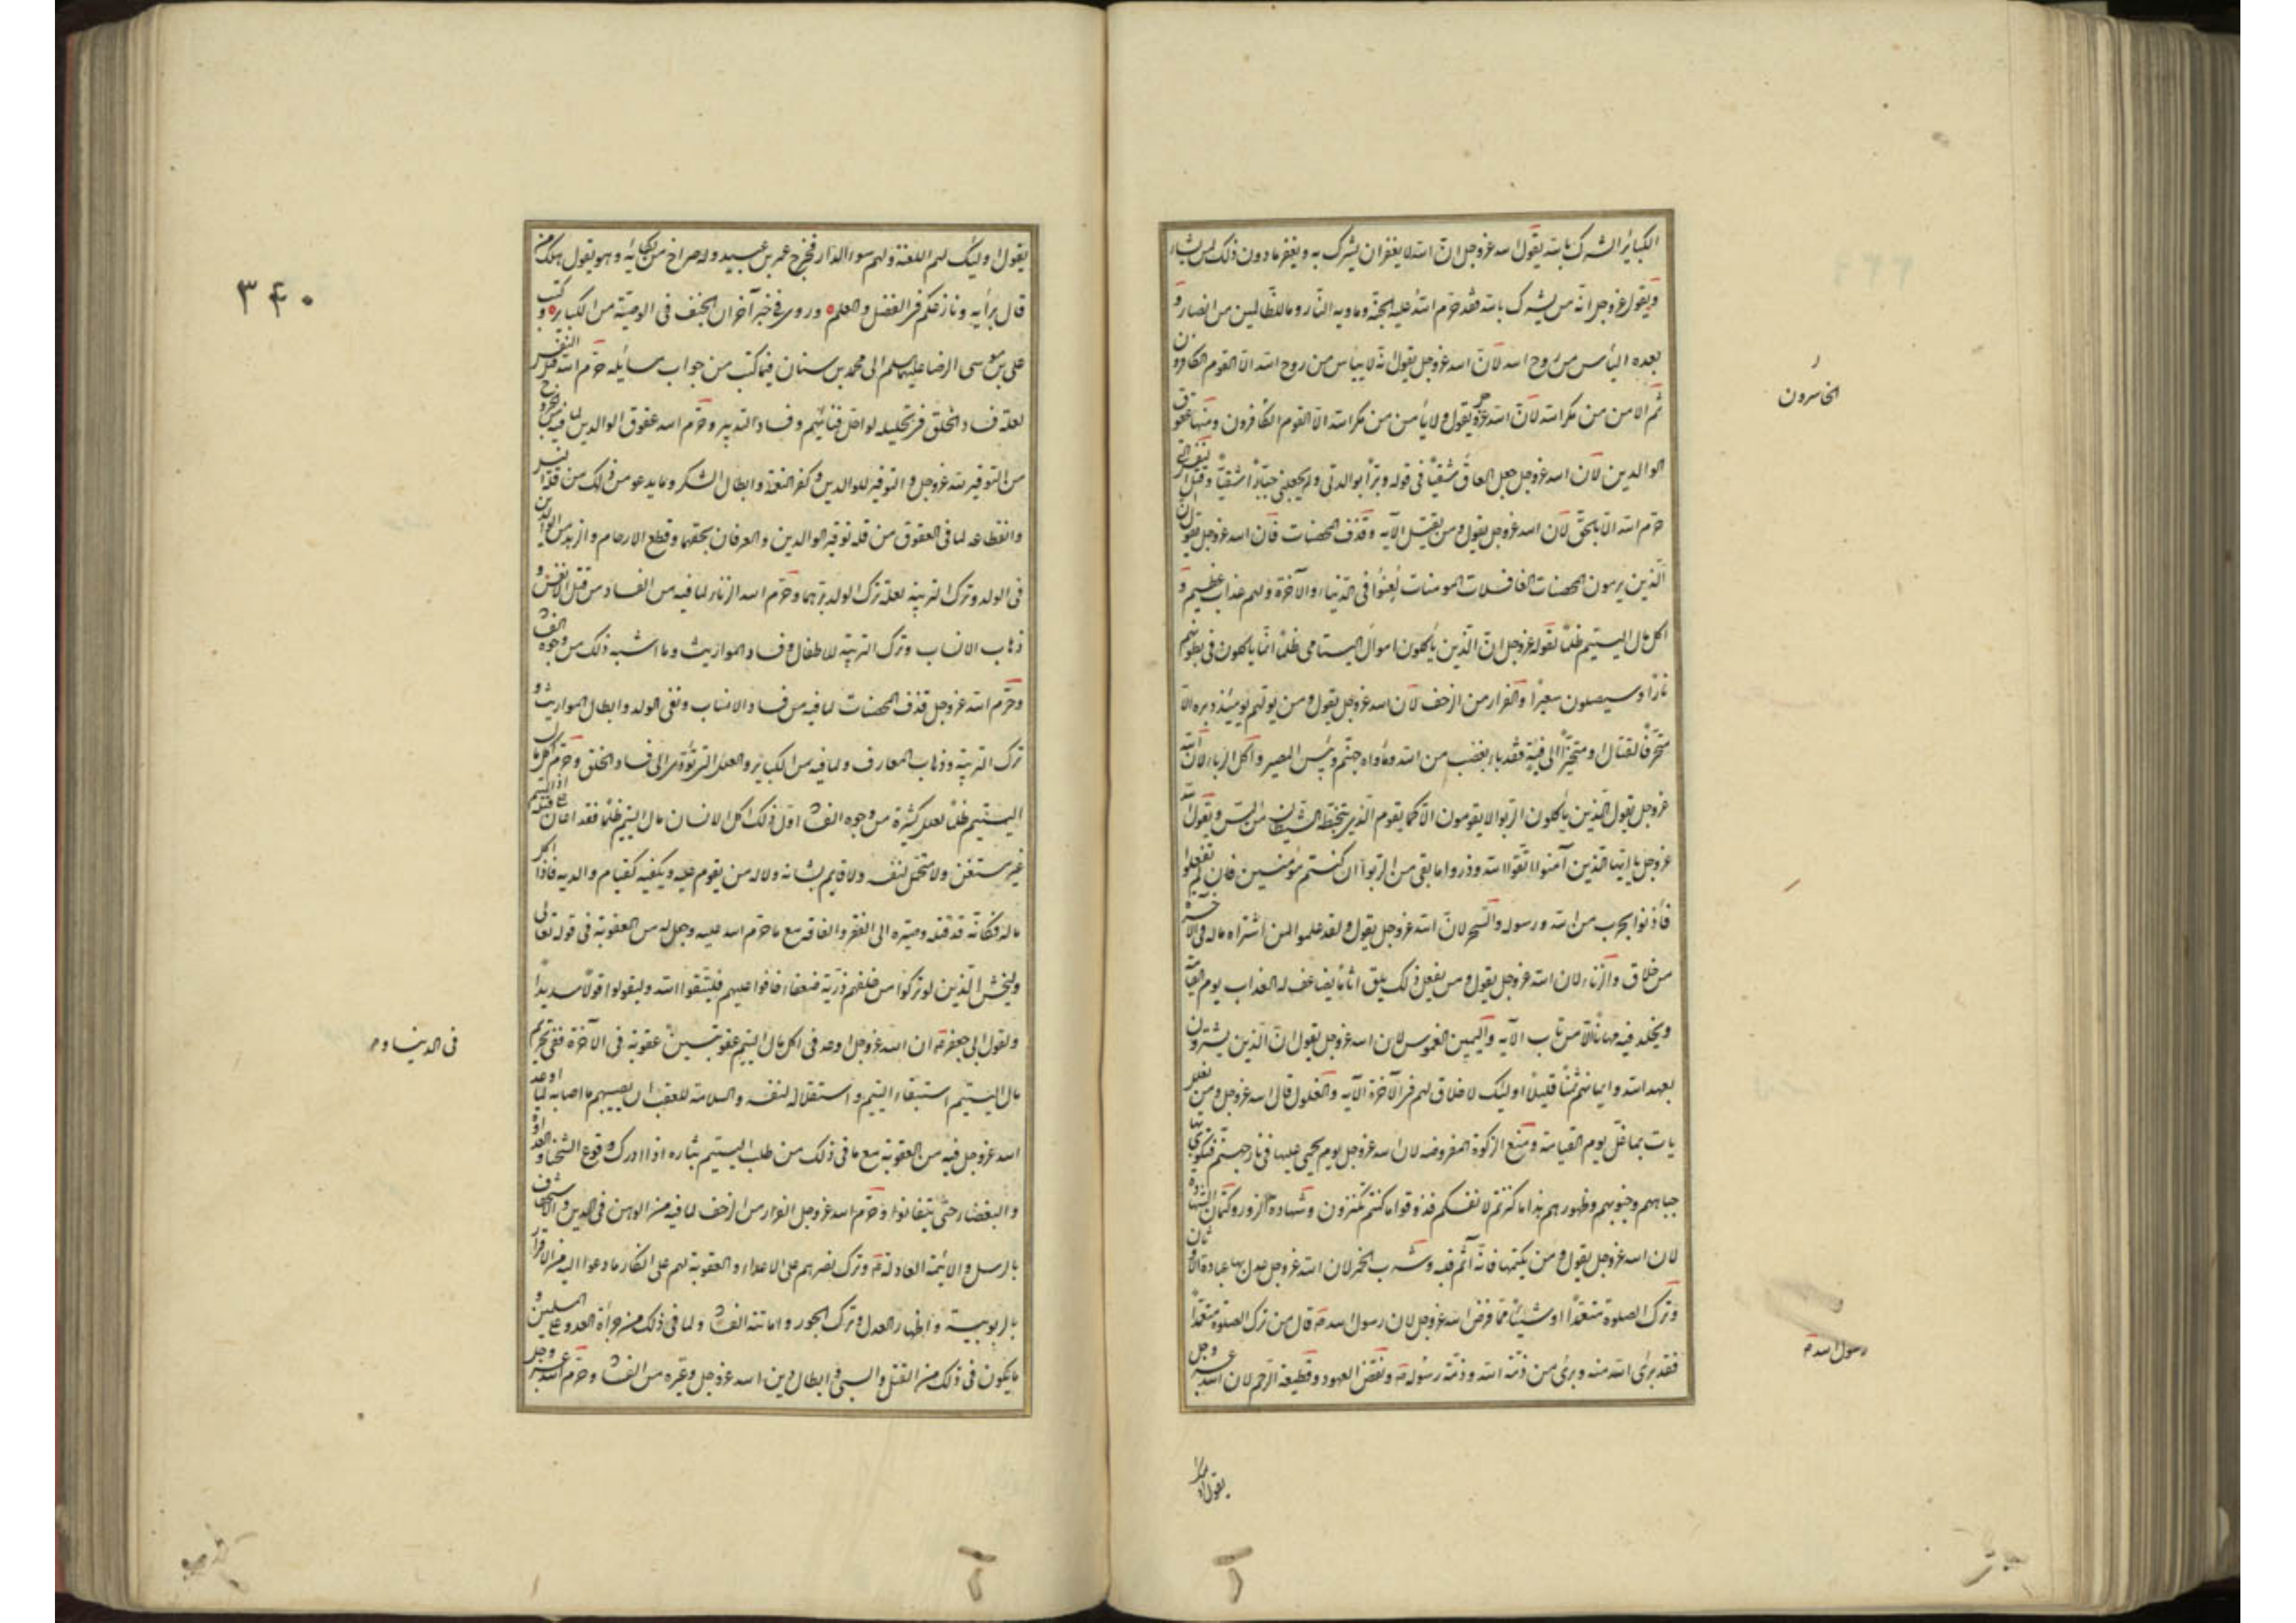 الكبائر الشرك بالله يقول الله عز و جل ان الله لا يغفر ان يشرك به و يغفر ما دون ذلك لمن يشاء
و يقول عز و جل انه من يشرك بالله فقد حرم الله عليه الجنة و ماويه النار و ما للظالمين من انصار و
بعده اليأس من روح الله لان الله عز و جل يقول انه لا ييأس من روح الله الا القوم الكافرون
ثم الامن من مكر الله لان الله عز و جل يقول و لا يأمن من مكر الله الا القوم الكافرون و منها عقوق
الخاسرون
الوالدين لان الله عز و جل جعل العاق شقيا في قوله و برا بوالدتي و لم يجعلني جبارا شقيا و قتل النفس التي
حرم الله الا بالحق لان الله عز و جل يقول و من يقتل الآية و قذف المحصنات فان الله عز و جل يقول ان
الذين يرمون المحصنات الغافلات المومنات لعنوا في الدنيا و الآخرة و لهم عذاب عظيم و
اكل مال اليتيم ظلما لقوله عز و جل ان الذين يأكلون اموال اليتامى ظلما انما ياكلون في بطونهم
نارا و سيصلون سعيرا و الفرار من الزحف لان الله عز و جل يقول و من يولهم يومئذ دبره الا
متحرفا لقتال او متحيزا الى فئة فقد باء بغضب من الله و مأواه جهنم و بئس المصير و اكل الربا لان الله
عز و جل يقول الذين يأكلون الربوا لا يقومون الا كما يقوم الذي يتخبطه الشيطان من المس و يقول الله
عز و جل يا ايها الذين آمنوا اتقوا الله و ذروا ما بقي من الربوا ان كنتم مؤمنين فان لم تفعلوا
فأذنوا بحرب من الله و رسوله و السحر لان الله عز و جل يقول و لقد علموا لمن اشتراه ما له في الآخرة
من خلاق و الزناء لان الله عز و جل يقول و من يفعل ذلك يلق اثاما يضاعف له العذاب يوم القيامة
و يخلد فيه مهانا الا من تاب الآية و اليمين الغموس لان الله عز و جل يقول ان الذين يشترون
بعهد الله و ايمانهم ثمنا قليلا اولئك لا خلاق لهم في الآخرة الآية و الغلول قال الله عز و جل و من يغلل
يات بما غل يوم القيامة و منع الزكوة المفروضه لان الله عز و جل يوم يحمى عليها في نار جهنم فتكوى بها
جباههم و جنوبهم و ظهورهم هذا ما كنزتم لانفسكم فذوقوا ما كنتم تكنزون و شهادة الزور و كتمان الشهادة
لان الله عز و جل يقول و من يكتمها فانه آثم قلبه و شرب الخمر لان الله عز و جل عدل بها عبادة الاوثان
و ترك الصلوة متعمدا او شيئا مما فرض الله عز و جل لان رسول الله ص قال من ترك الصلوة متعمدا
رسول الله ص
فقد برئ الله منه و برئ من ذمة الله و ذمة رسوله ص و نقض العهود و قطيعة الرحم لان الله عز و جل
يقول اولئك
٣٤٠
يقول اولئك لهم اللعنة و لهم سوء الدار فخرج عمر بن عبيد و له صراخ من بكائه و هو يقول هلك من
قال برأيه و نازعكم في الفضل و العلم و روي في خبر آخر ان الحنف في الوصية من الكبائر و كتب
علي بن موسى الرضا عليهما السلم الى محمد بن سنان فيما كتب من جواب مسايله حرم الله قتل النفس
لعلة فساد الخلق في تحليله لو احل و فنائهم و فساد التدبير و حرم الله عقوق الوالدين لما فيه من الخروج
من التوقير لله عز و جل و التوقير للوالدين و كفر النعمة و ابطال الشكر و ما يدعو من ذلك من قلة النسل
و انقطاعه لما في العقوق من قلة توقير الوالدين و العرفان بحقهما و قطع الارحام و الزهد من الوالدين
في الولد و ترك التربية لعلة ترك الولد برهما و حرم الله الزناء لما فيه من الفساد من قتل الانفس و
ذهاب الانساب و ترك التربية للاطفال و فساد المواريث و ما اشبه ذلك من وجوه الفساد
و حرم الله عز و جل قذف المحصنات لما فيه من فساد الانساب و نفي الولد و ابطال المواريث و
ترك التربية و ذهاب المعارف و لما فيه من الكبائر و العلل التي تؤدي الى فساد الخلق و حرم اكل مال
اليتيم ظلما لعلل كثيرة من وجوه الفساد اول ذلك اكل الانسان مال اليتيم ظلما فقد اعان على قتله اذ اليتيم
غير مستغن و لا متحمل لنفسه و لا قايم بشانه و لا له من يقوم عليه و يكفيه كقيام والديه فاذا اكل
ماله فكانه قد قتله و صيره الى الفقر و الفاقه مع ما حرم الله عليه و جعل له من العقوبة في قوله تعالى
و ليخش الذين لو تركوا من خلفهم ذرية ضعفاء خافوا عليهم فليتقوا الله و ليقولوا قولا سديدا
و لقول ابي جعفر ع ان الله عز و جل اوعد في اكل مال اليتيم عقوبتين عقوبة في الآخرة ففي تحريم
في الدنيا و
مال اليتيم استبقاء اليتيم و استقلاله لنفسه و السلامة للعقب ان يصيبهم ما اصابه لما اوعد
الله عز و جل فيه من العقوبة مع ما في ذلك من طلب اليتيم بثاره اذا ادرك و وقوع الشحناء و العداوة
و البغضاء حتى يتفانوا و حرم الله عز و جل الفرار من الزحف لما فيه من الوهن في الدين و الاستخفاف
بالرسل و الائمة العادلة ع و ترك نصرهم على الاعداء و العقوبة لهم على انكار ما دعوا اليه من الاقرار
بالربوبية و اظهار العدل و ترك الجور و اماتة الفساد و لما في ذلك من جرأة العدو على المسلمين و
ما يكون في ذلك من القتل و السبي و ابطال دين الله عز و جل و غيره من الفساد و حرم الله عز و جل